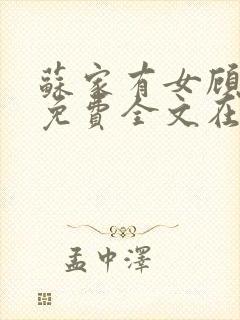 蘇家有女顾
免費全文在
孟中澤